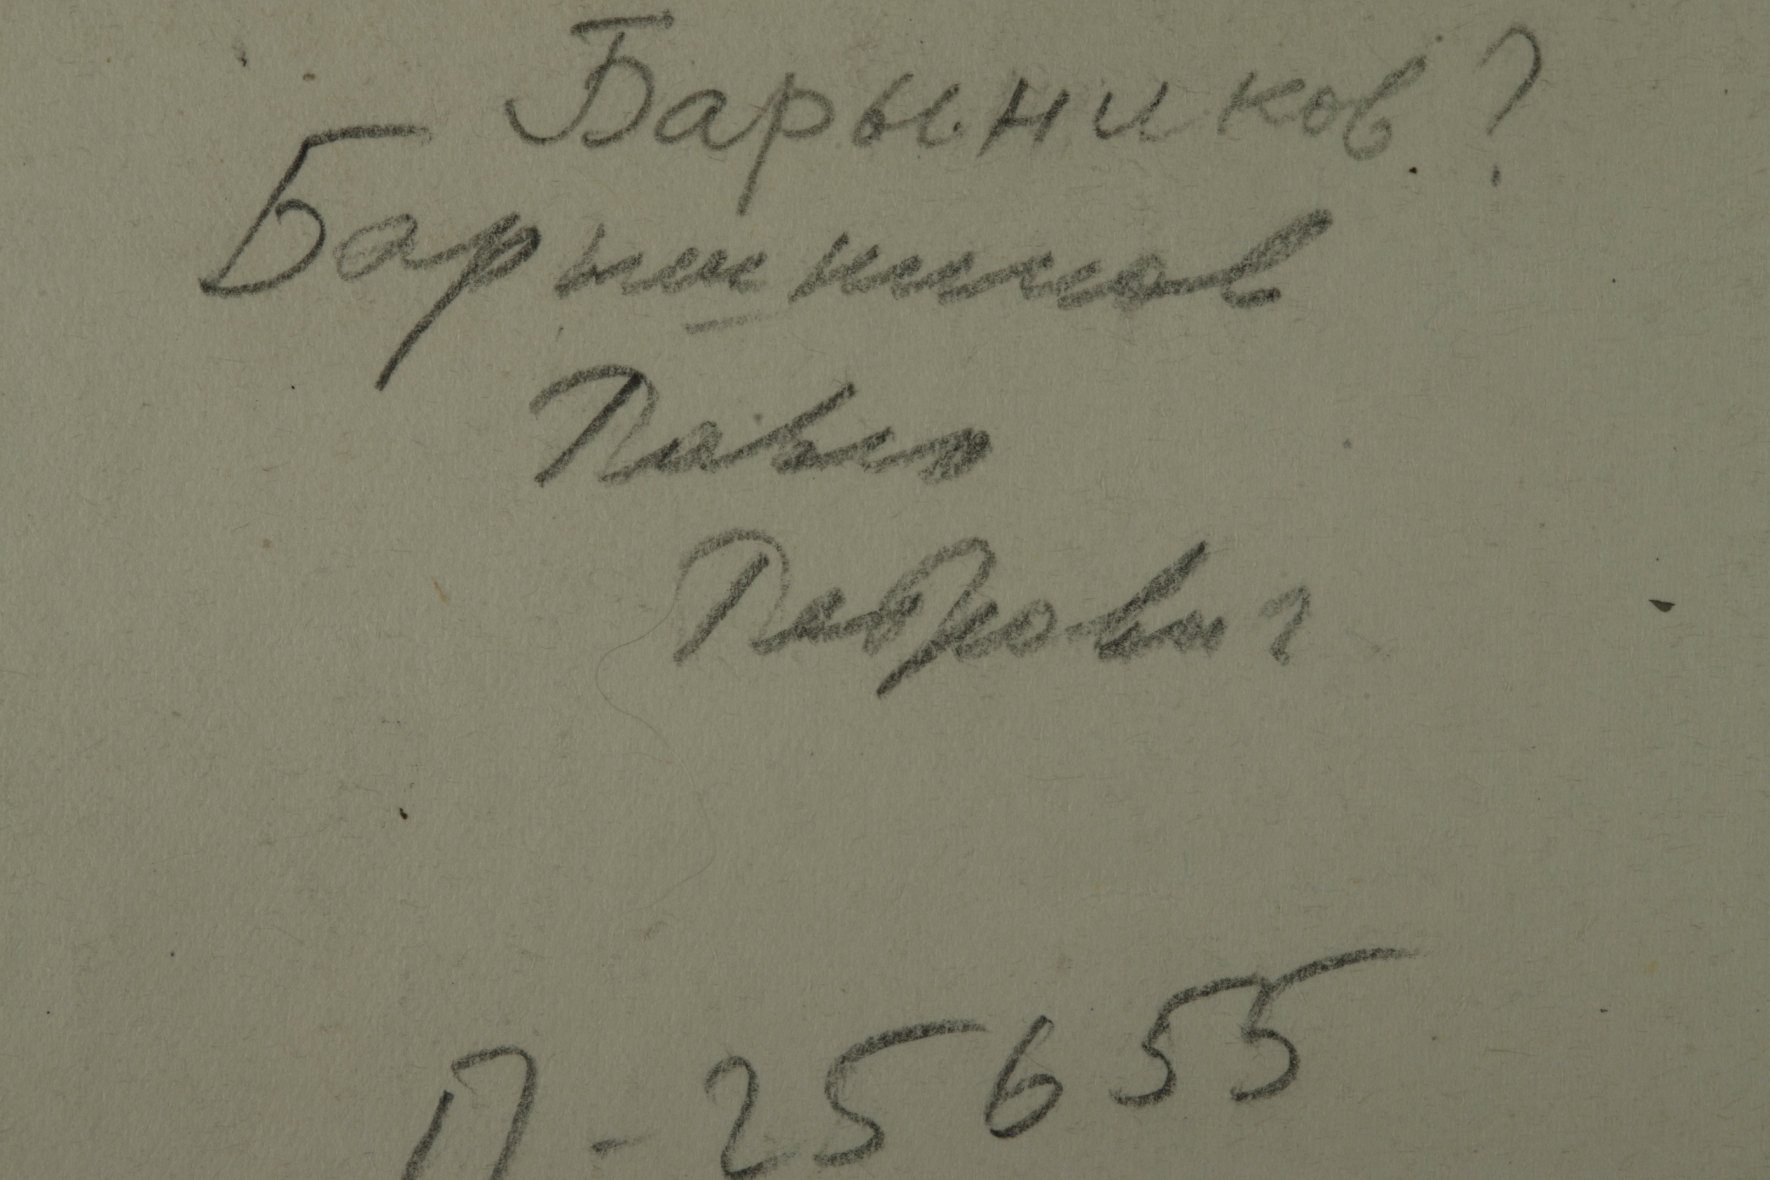 Барыников?
Барышников
Павел
Петрович
П-25655